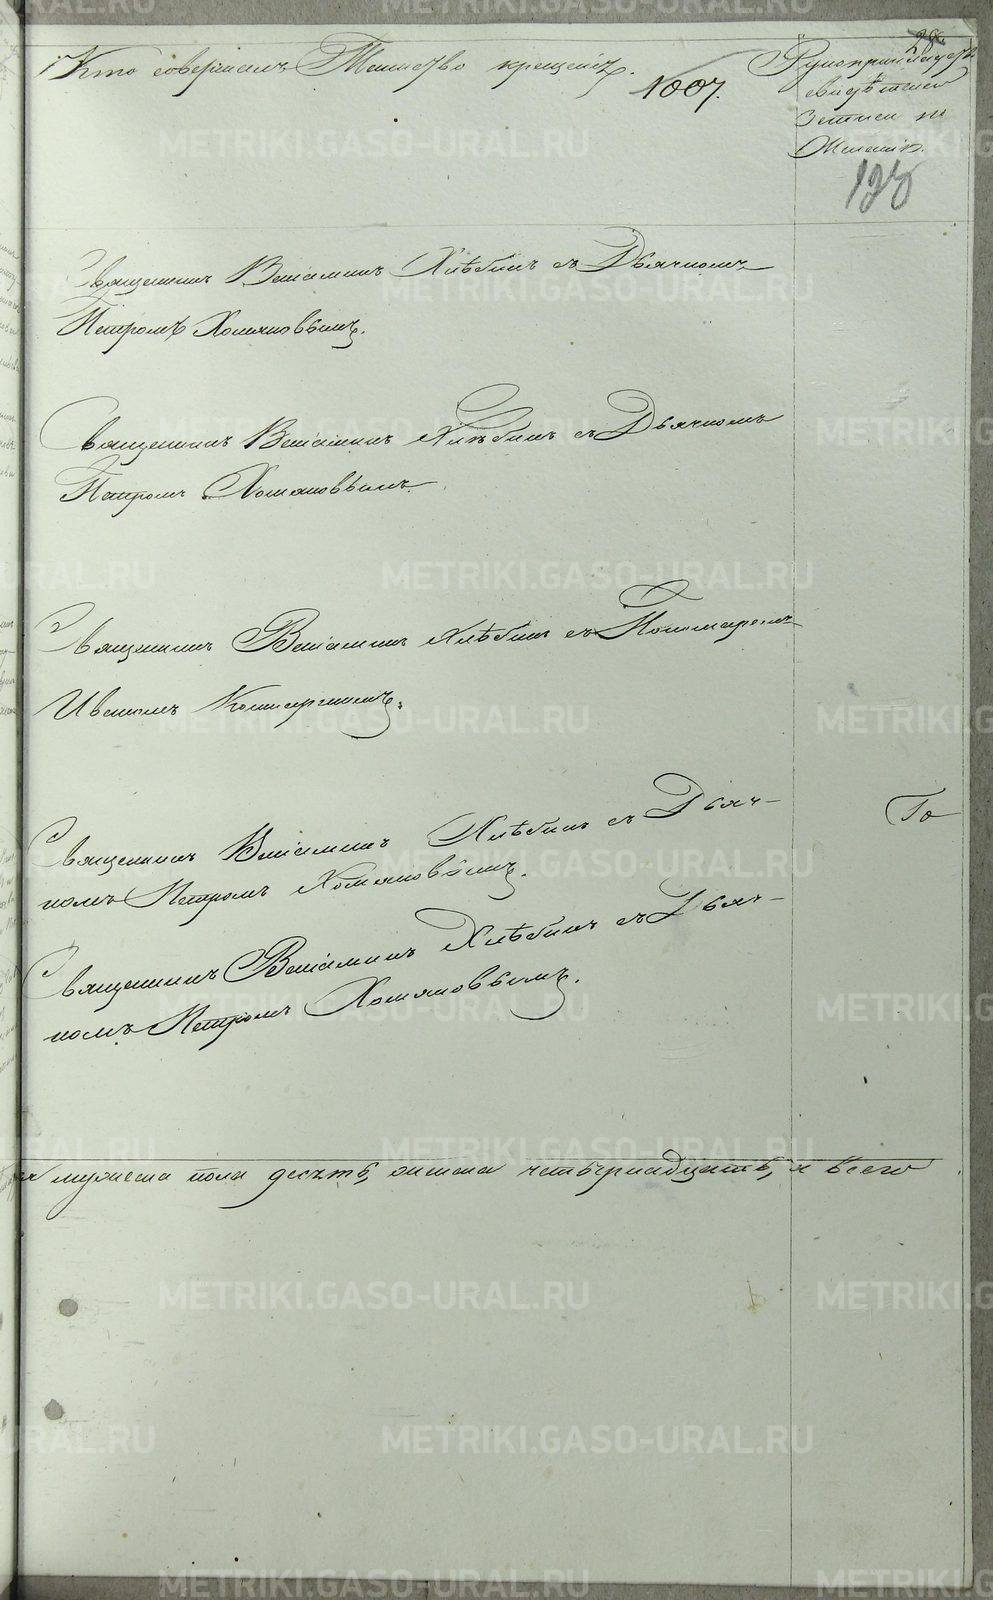 Кто совершалъ Таинство крещенія.
1007.
28
Рукоприкладство
свидѣтелей
записи по
желанію.
Священникъ Веніаминъ Хлѣбинъ съ Дьячкомъ
Петромъ Хомяковымъ.
Священникъ Веніаминъ Хлѣбинъ съ Дьячкомъ
Петромъ Хомяковымъ.
Священникъ Веніаминъ Хлѣбинъ съ Пономаремъ
Иваномъ
Священникъ Веніаминъ Хлѣбинъ съ Дьяч-
комъ Петромъ Хомяковымъ.
Священникъ Веніаминъ Хлѣбинъ съ Дьяч-
комъ Петромъ Хомяковымъ.
мужеска пола десять, женска четырнадцать, а всего
METRIKI.GASO-URAL.RU